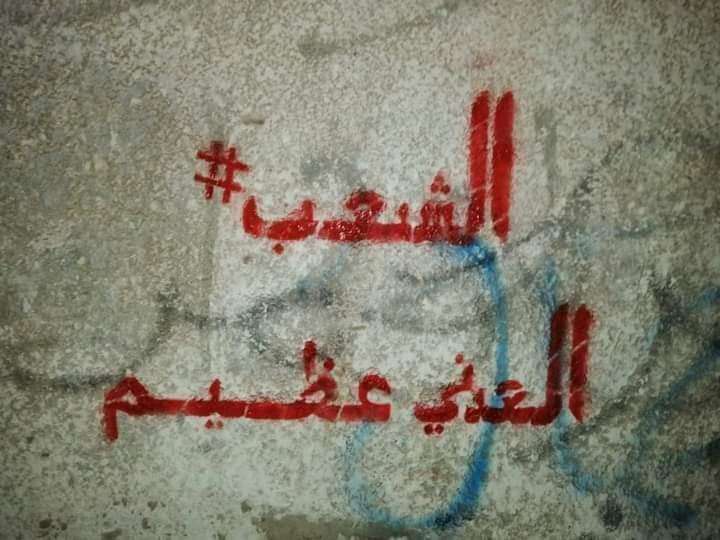 #الشعب
العني عظيم